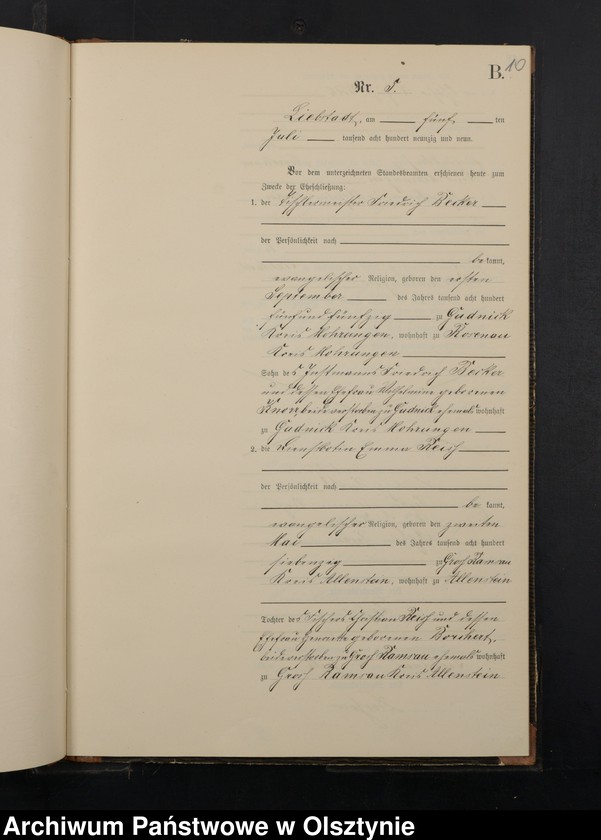 B. 10
Nr. 5.
Liebstadt, am fünf ten
Juli tausend acht hundert neunzig und neun.
Vor dem unterzeichneten Standesbeamten erschienen heute zum
Zwecke der Eheschließung:
1. der Tischlermeister Friedrich Becker
der Persönlichkeit nach
be kannt,
evangelischer Religion, geboren den ersten
September des Jahres tausend acht hundert
fünfundfünfzig zu Gudnick
Kreis Mohrungen, wohnhaft zu Rosenau
Kreis Mohrungen
Sohn des Instmanns Friedrich Becker
und dessen Ehefrau Wilhelmine geborenen
Knorr, beide verstorben zu Gudnick ehemals wohnhaft
zu Gudnick Kreis Mohrungen
2. die Dienstbotin Emma Reich
der Persönlichkeit nach
be kannt,
evangelischer Religion, geboren den zweiten
Mai des Jahres tausend acht hundert
siebenzig zu Groß Ramsau
Kreis Allenstein, wohnhaft zu Allenstein
Tochter des Christian Reich und dessen
Ehefrau geborenen Borchert,
beide verstorben zu Groß Ramsau ehemals wohnhaft
zu Groß Ramsau Kreis Allenstein
Archiwum Państwowe w Olsztynie